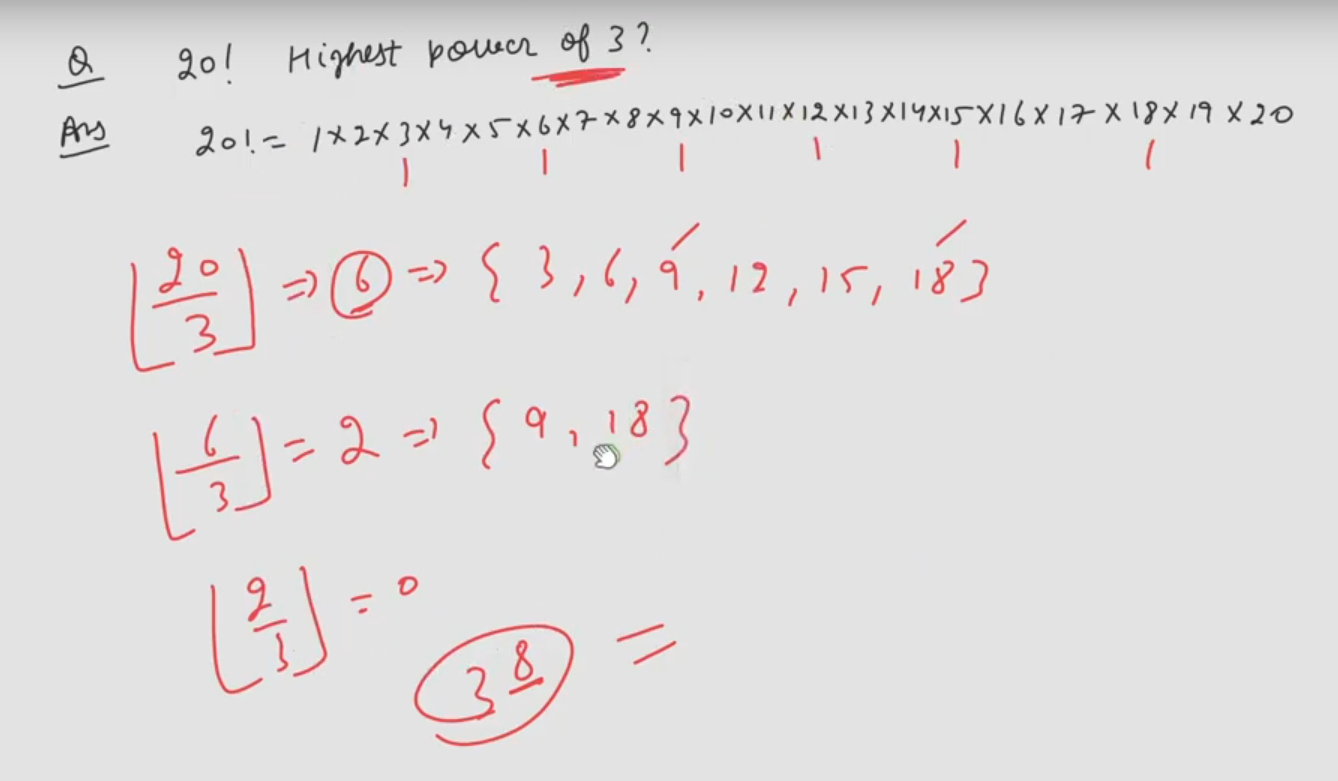 Q 20! Highest power of 3?
Ans 20! = 1×2×3×4×5×6×7×8×9×10×11×12×13×14×15×16×17×18×19×20
| | | | | |
⌊20/3⌋ ⇒ 6 ⇒ { 3, 6, 9, 12, 15, 18 }
⌊6/3⌋ = 2 ⇒ { 9, 18 }
⌊2/3⌋ = 0
3⁸ =